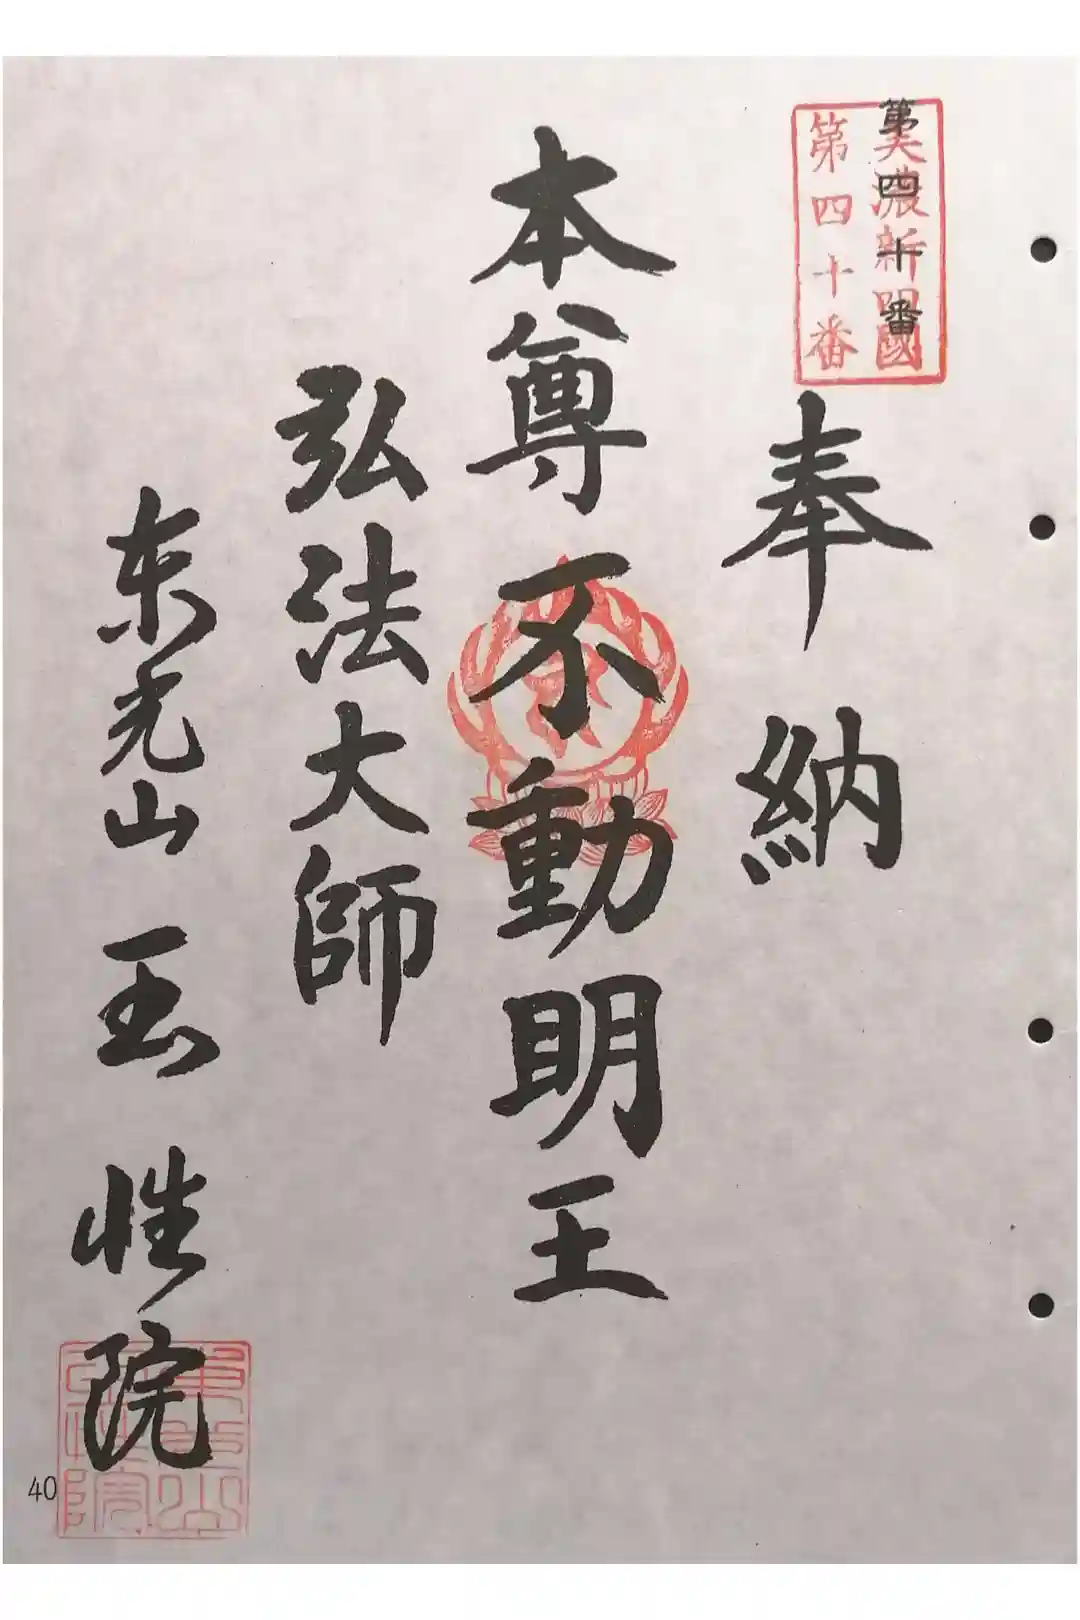 第四十番
美濃新四國
第四十番
奉納
本尊不動明王
弘法大師
东光山玉性院
40